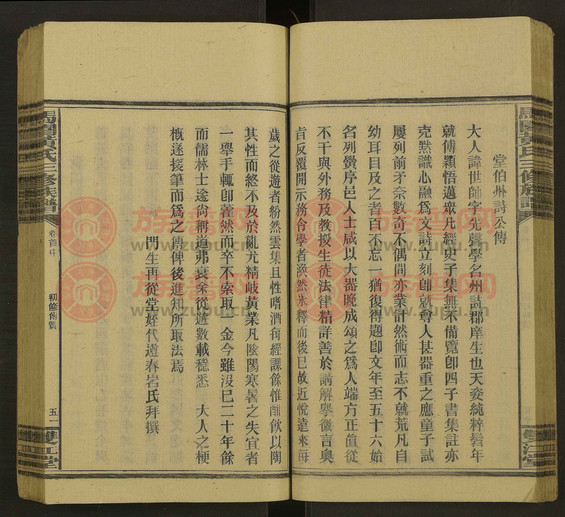 堂伯州詩公傳
大人諱世師字先聲學名州詩郡庠生也天姿純粹髫年
就傅穎悟邁眾凡經史子集無不備覽即四子書集註亦
克默識心融為文詩立刻即就會人甚器重之應童子試
屢列前矛奈數奇不偶間亦業計然術而志不就荒凡自
幼耳目及之者百不忘一猶復得題即文年至五十六始
名列黌序邑人士咸以大器晚成頌之為人端方正直從
不干與外務及教授生徒法律精詳善於講解舉微言奧
旨反覆開示務令學者渙然冰釋而後已故近悅遠來每
歲之從遊者紛然雲集且性嗜酒每經課餘惟酣飲以陶
其性而經不及於亂尤精岐黃業凡陰陽寒暑之失宜者
一舉手輒即霍然而卒不索取一金今雖沒已二十年餘
而儒林士逵尚稱道弗衰余從遊數載稔悉 大人之梗
概遂援筆而為之傳俾後進知所取法焉
門生再從堂姪代遵春岩氏拜撰
黃氏三修族譜
卷首中
五一
雙江堂
族谱网
www.zupu.cn